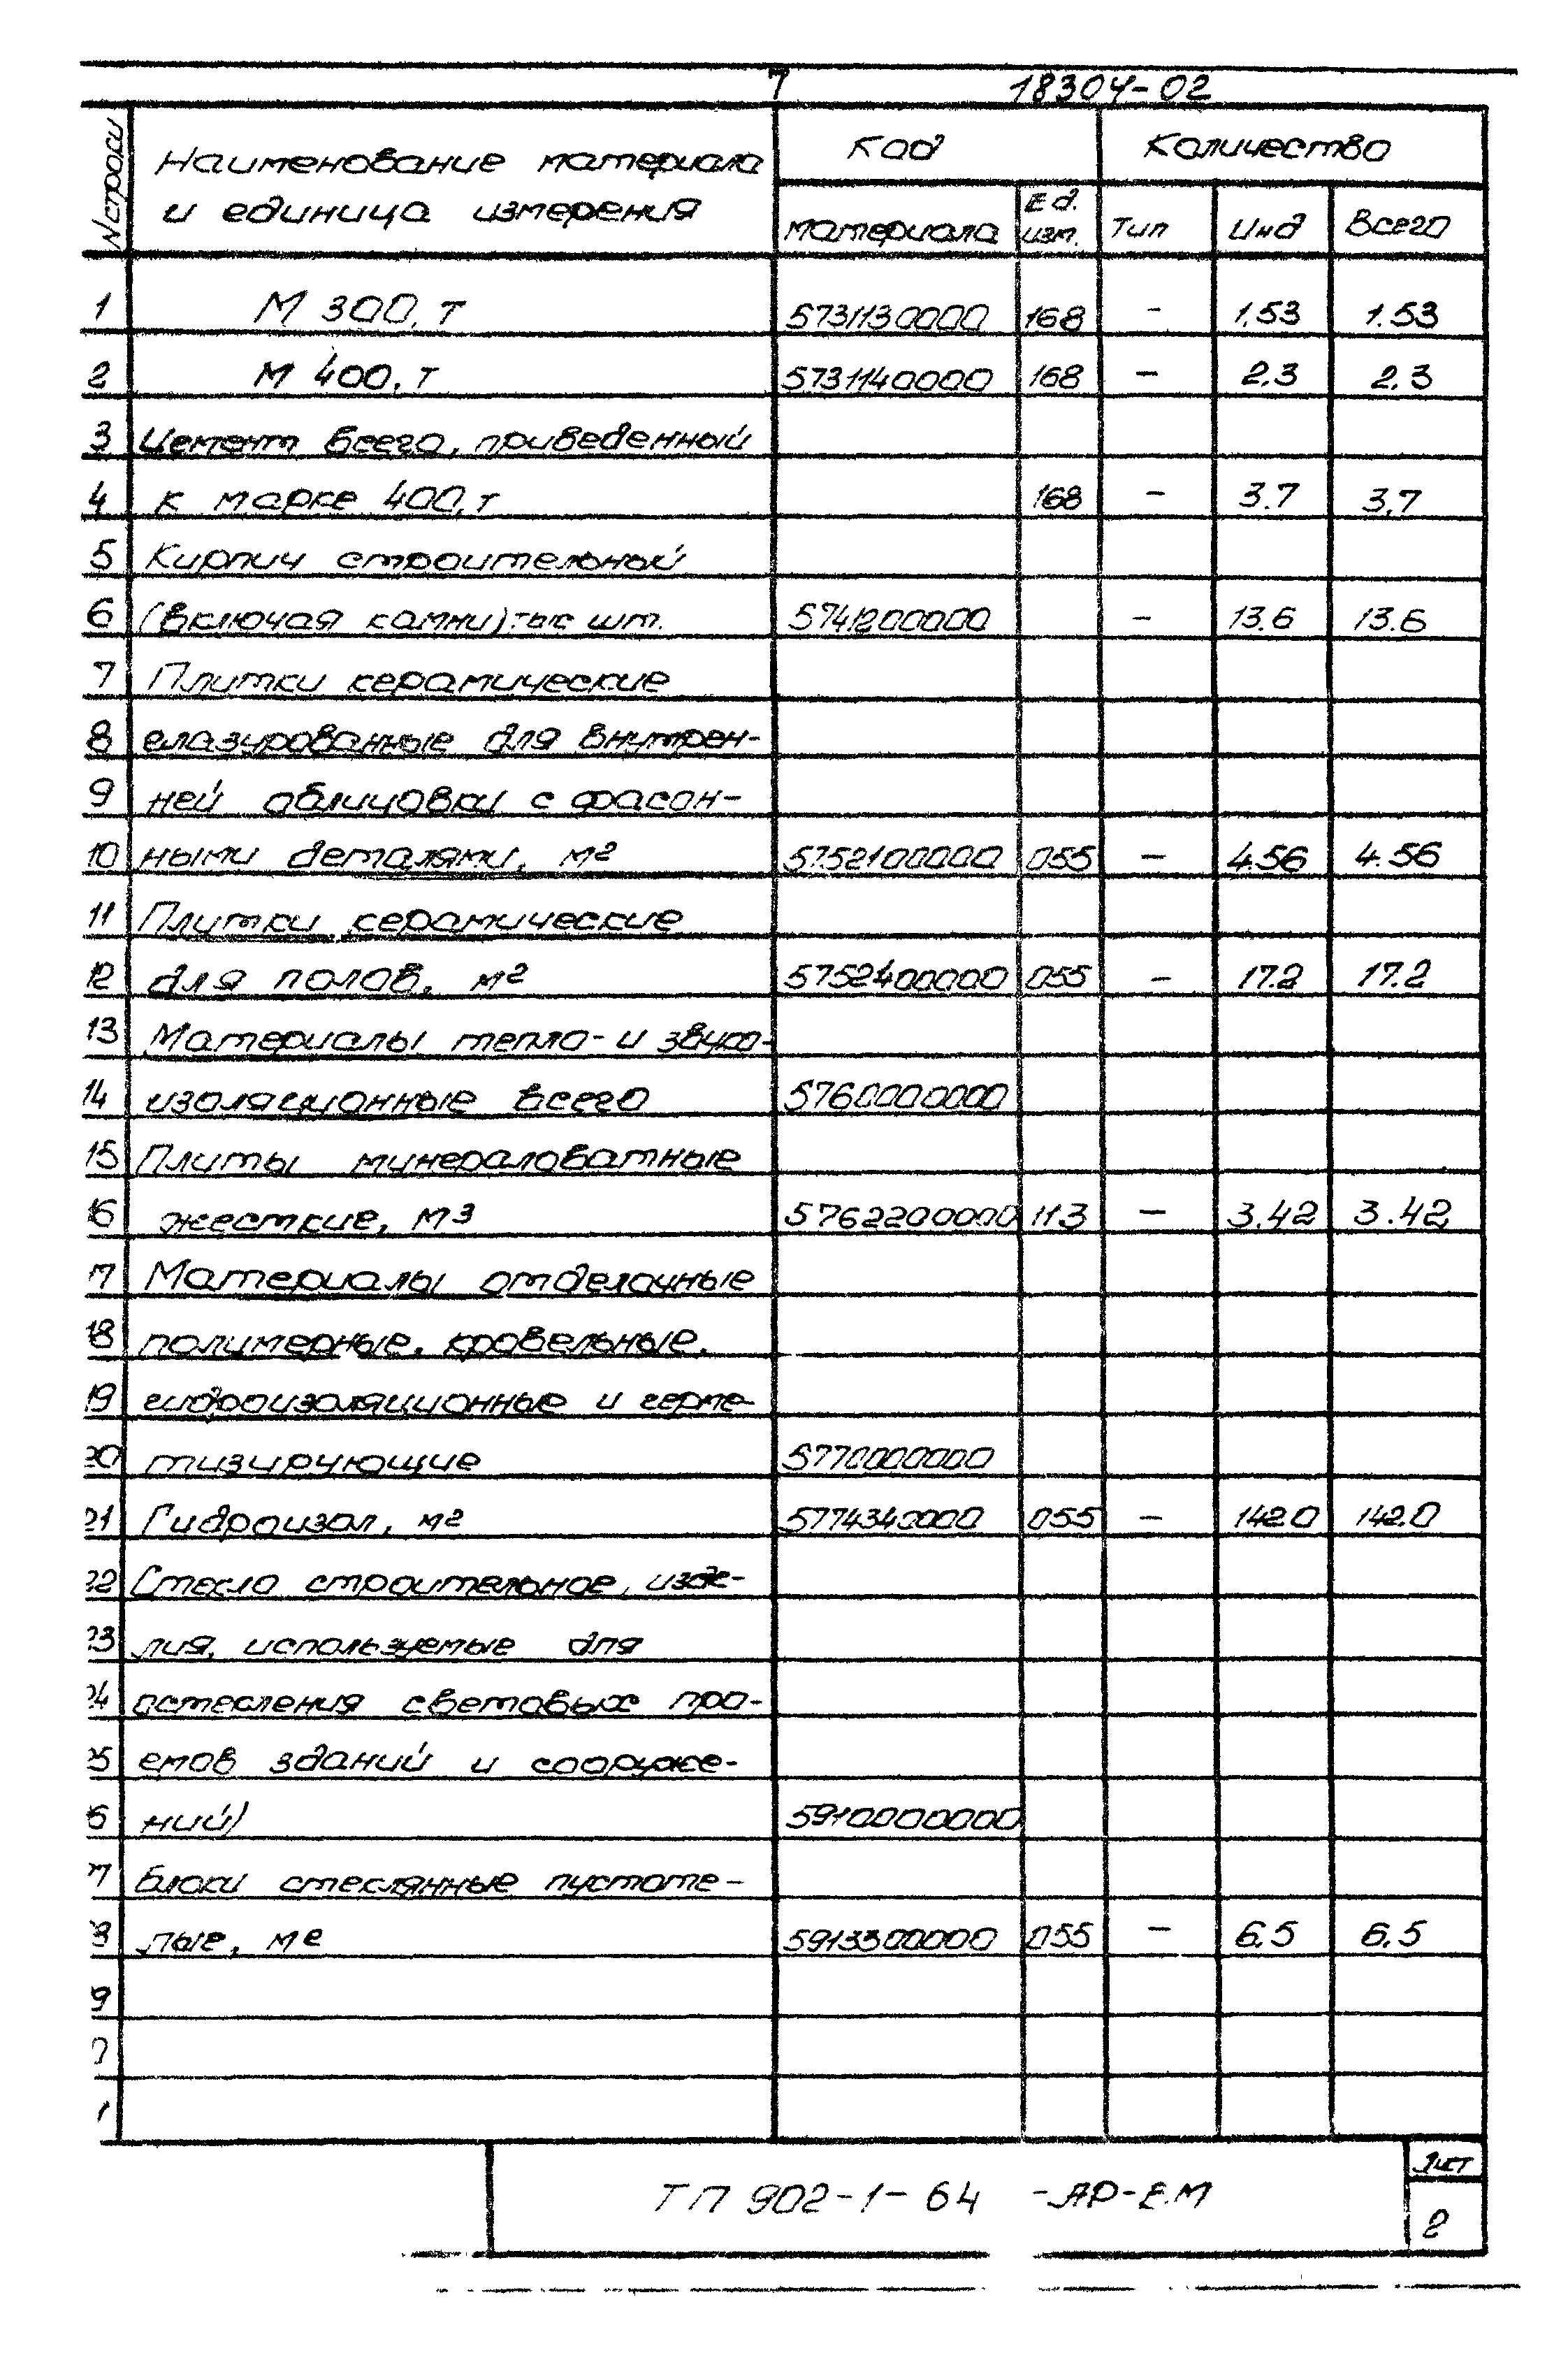 7 18304-02
N строки Наименование материала и единица измерения Код Количество
материала Ед. изм. Тип Инд Всего
1 М 300, т 5731130000 168 - 1,53 1.53
2 М 400, т 5731140000 168 - 2,3 2,3
3 Цемент всего, приведенный
4 к марке 400, т 168 - 3.7 3,7
5 Кирпич строительный
6 (включая камни) тыс шт. 5741200000 - 13.6 13.6
7 Плитки керамические
8 глазурованные для внутрен-
9 ней облицовки с фасон-
10 ными деталями, м2 5752100000 055 - 4.56 4.56
11 Плитки керамические
12 для полов, м2 5752400000 055 - 17.2 17.2
13 Материалы тепло- и звуко-
14 изоляционные всего 5760000000
15 Плиты минераловатные
16 жесткие, м3 5762200000 113 - 3.42 3.42
17 Материалы отделочные
18 полимерные, кровельные,
19 гидроизоляционные и герме-
20 тизирующие 5770000000
21 Гидроизол, м2 5774340000 055 - 142.0 142.0
22 Стекло строительное, изде-
23 лия, используемые для
24 остекления световых про-
25 емов зданий и сооруже-
6 ний) 5910000000
7 Блоки стеклянные пустоте-
8 лые, м2 5913300000 055 - 6.5 6,5
9
0
1
ТП 902-1-64 -АР-ЕМ Лист
2